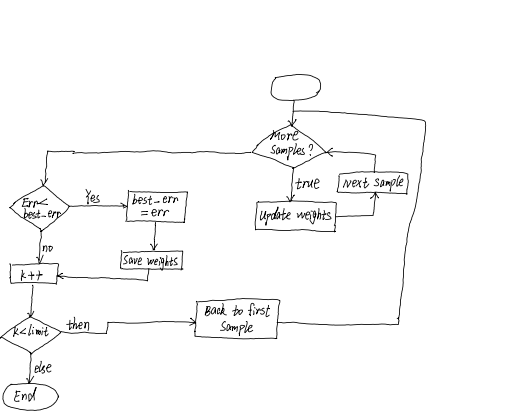 More
samples?
true
Next sample
Update weights
Err<
best_err
Yes
best_err
= err
no
Save weights
k++
k<limit
then
Back to first
Sample
else
End